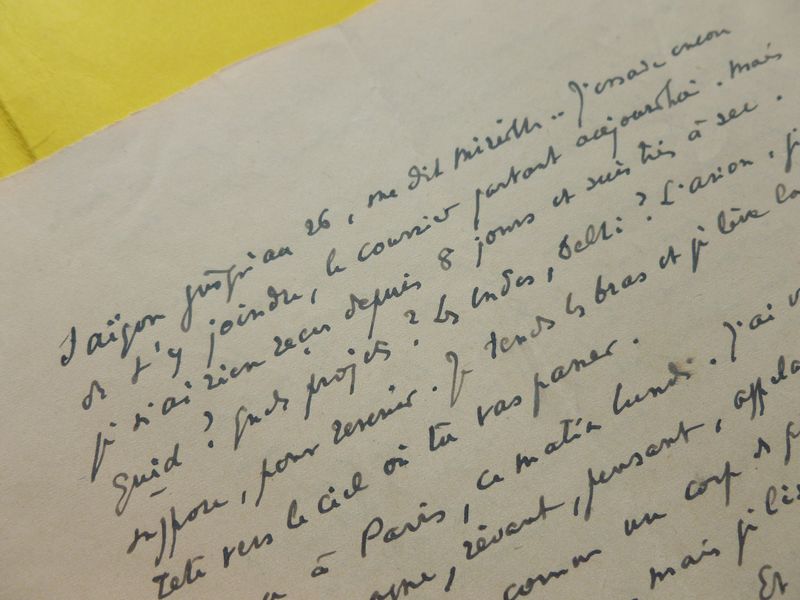 Saïgon jusqu'au 26, me dit Mireille.. J'essaie encore
de t'y joindre, le courrier partant aujourd'hui. Mais
je n'ai rien reçu depuis 8 jours et suis très à sec.
Quid? Quels projets? Les Indes, Delhi? L'avion, je
suppose, pour revenir. Je tends les bras et je lève la
tête vers le ciel où tu vas passer.
à Paris, ce matin lundi. J'ai
rêvant, pensant,
comme un corps
mais je lis
Et